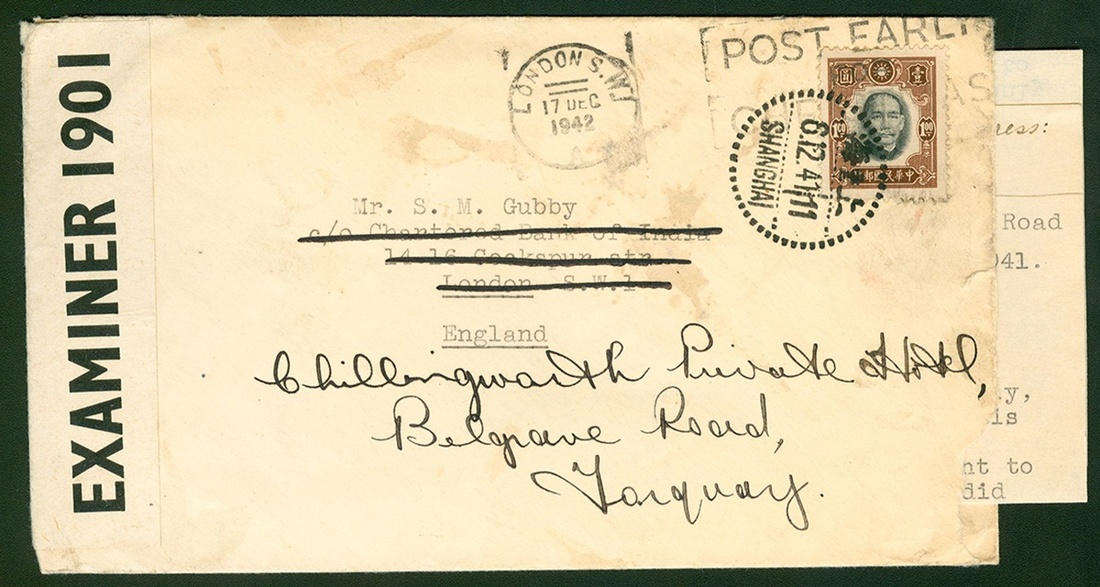 EXAMINER 1901
LONDON S.W.1
17 DEC
1942
POST EARLY
AS
圓 壹
1.00 1.00
中華民國郵
6.12.41 11
SHANGHAI
上
Mr. S. M. Gubby
c/o Chartered Bank of India
14-16 Cockspur str.
London S.W.1.
England
Chillingworth Private Hotel,
Belgrave Road,
Torquay.
ress:
Road
941.
y,
is
nt to
did